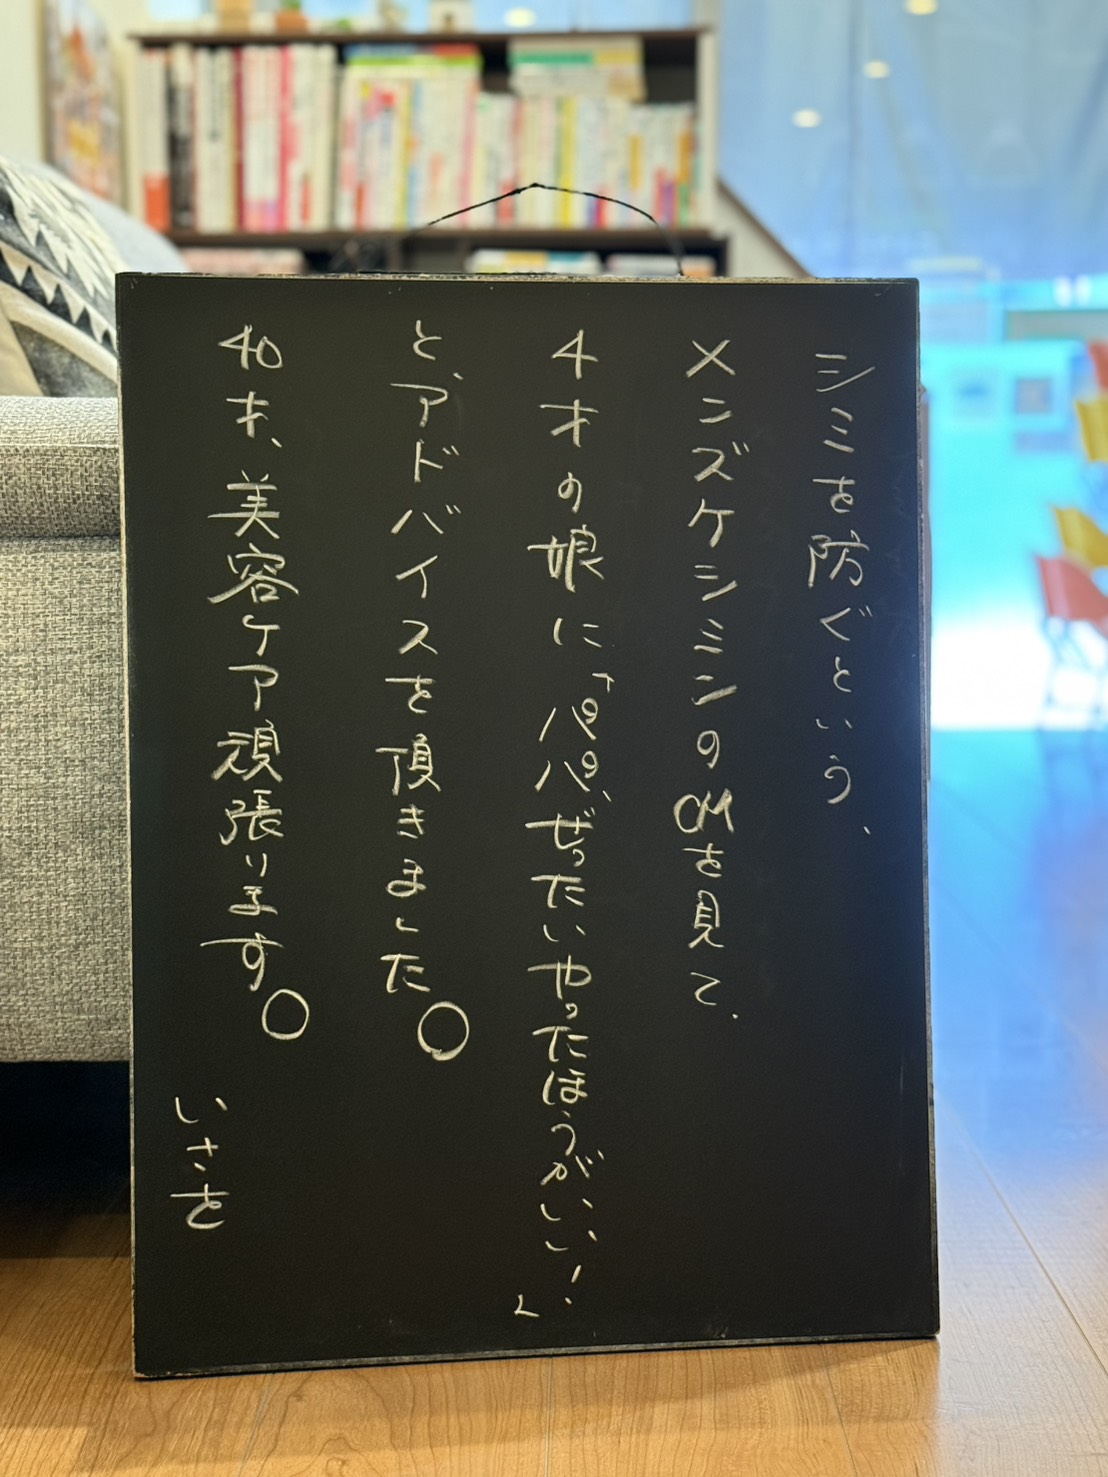 シミを防ぐという、
メンズケシミンのCMを見て、
4才の娘に「パパ、ぜったいやったほうがいい!」
と、アドバイスを頂きました○
40才、美容ケア頑張ります○
いさを